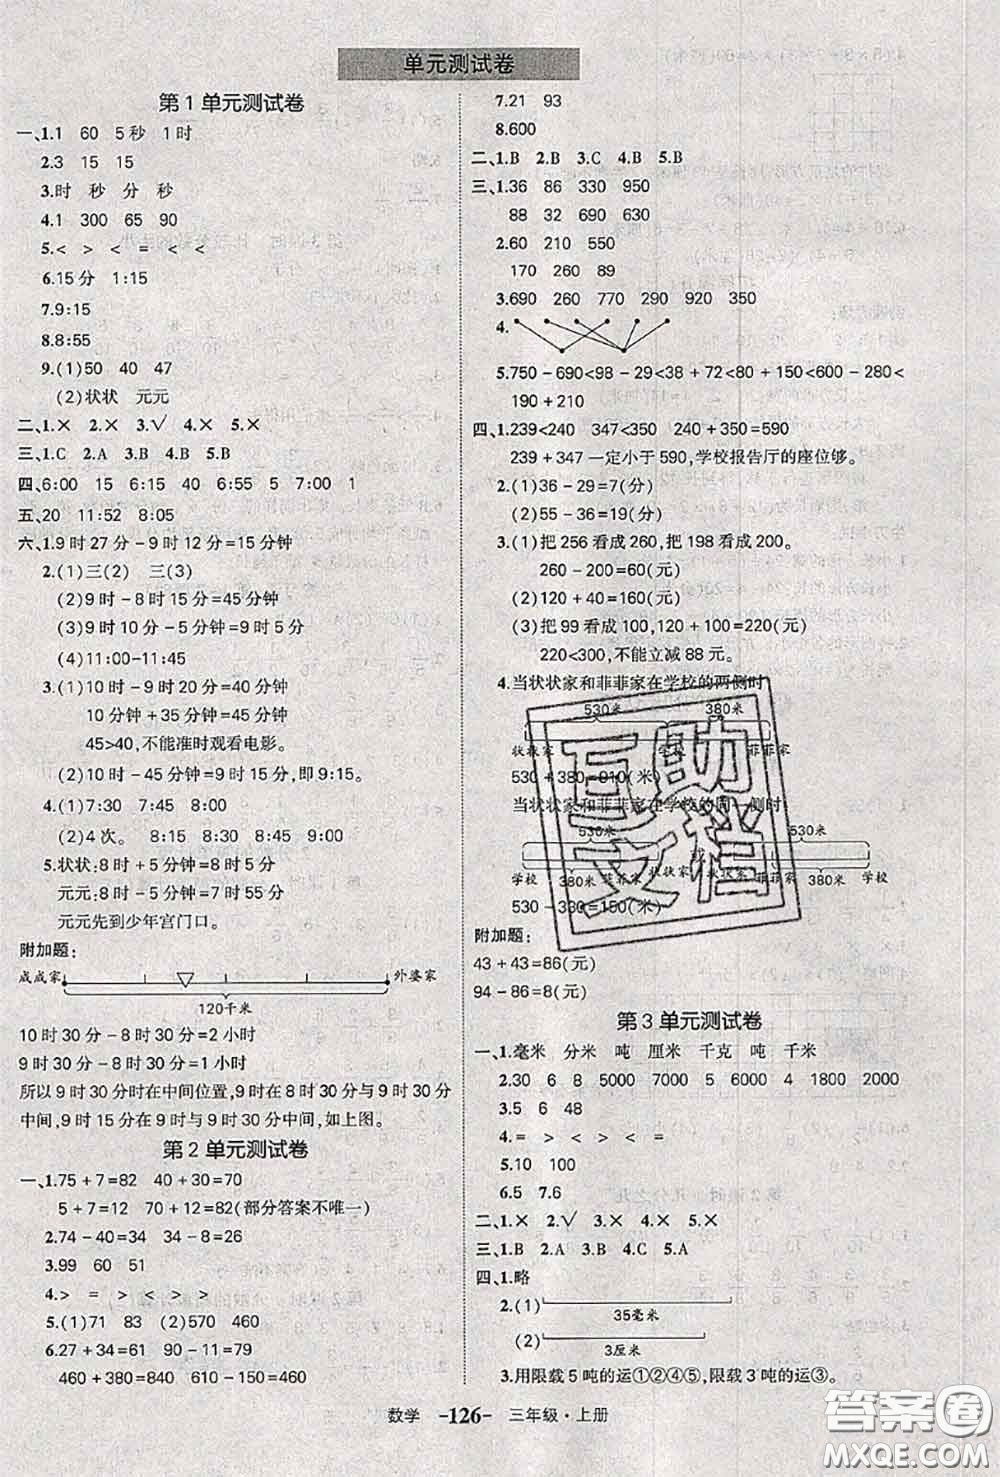 单元测试卷
第1单元测试卷
一、1.1 60 5秒 1时
2.3 15 15
3.时 秒 分 秒
4.1 300 65 90
5.< > > = < <
6.15分 1:15
7.9:15
8.8:55
9.(1)50 40 47
(2)状状 元元
二、1.× 2.× 3.√ 4.× 5.×
三、1.C 2.A 3.B 4.B 5.B
四、6:00 15 6:15 40 6:55 5 7:00 1
五、20 11:52 8:05
六、1.9时27分-9时12分=15分钟
2.(1)三(2) 三(3)
(2)9时-8时15分=45分钟
(3)9时-8时10分=50分钟
(4)11:00-11:45
3.(1)10时-9时20分=40分钟
10分钟+35分钟=45分钟
45>40,不能准时观看电影。
(2)10时-45分钟=9时15分
4.(1)7:30 7:45 8:00
(2)4次。 8:15 8:30 8:45 9:00
5.状状:8时+5分钟=8时5分
元元:8时-5分钟=7时55分
元元先到少年宫门口。
附加题:
成成家 外婆家
120千米
10时30分-8时30分=2小时
9时30分-8时30分=1小时
所以9时30分时在中间位置,9时在8时30分与9时30分
中间,9时15分在9时与9时30分中间,如上图。
第2单元测试卷
一、1.75+7=82 40+30=70
5+7=12 70+12=82(部分答案不唯一)
2.74-40=34 34-8=26
3.99 60 51
4.> = > > > <
5.(1)71 83 (2)570 460
6.27+34=61 90-11=79
460+380=840 610-150=460
7.21 93
8.600
二、1.B 2.B 3.C 4.B 5.B
三、1.36 86 330 950
88 32 690 630
2.60 210 550
170 260 89
3.690 260 770 290 920 350
4.
5.750-690<98-29<38+72<80+150<600-280<
190+210
四、1.239<240 347<350 240+350=590
239+347一定小于590,学校报告厅的座位够。
2.(1)36-29=7(分)
(2)55-36=19(分)
3.(1)把256看成260,把198看成200。
260-200=60(元)
(2)120+40=160(元)
(3)把99看成100,120+100=220(元)
220<300,不能立减88元。
4.当状状家和菲菲家在学校的两侧时:
530米 380米
状状家 学校 菲菲家
530+380=910(米)
当状状家和菲菲家在学校的同一侧时:
530米 530米
学校 380米 菲菲家 状状家 状状家 菲菲家 380米 学校
530-380=150(米)
附加题:
43+43=86(元)
94-86=8(元)
第3单元测试卷
一、1.毫米 分米 吨 厘米 千克 吨 千米
2.30 6 8 5000 7000 5 6000 4 1800 2000
3.5 6 48
4.= > < > < =
5.10 50
6.5 7.6
二、1.× 2.√ 3.× 4.× 5.×
三、1.B 2.A 3.B 4.C 5.A
四、1.略
2.(1)
35毫米
(2)
3厘米
3.用限载5吨的运①②④⑤,限载3吨的运③。
数学 -126- 三年级·上册
互助文档
答案圈
MXQE.COM